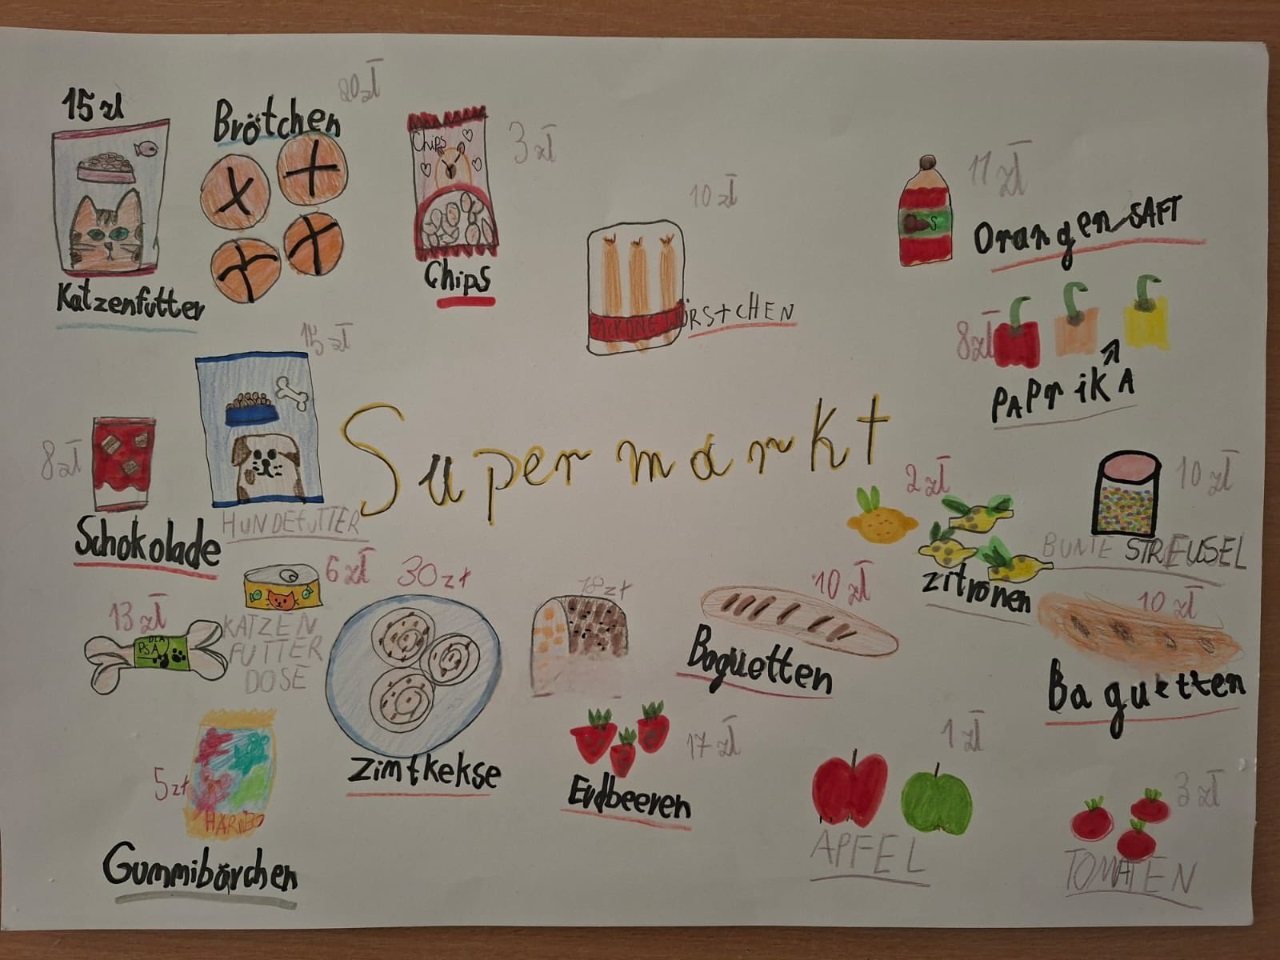 15 zł
Brötchen
20 zł
Chips
3 zł
Katzenfutter
Chips
10 zł
WÜRSTCHEN
11 zł
Orangen SAFT
8 zł
PAPriKA
15 zł
8 zł
Schokolade
HUNDEFUTTER
Supermarkt
2 zł
zitronen
10 zł
BUNTE STREUSEL
13 zł
DLA
PSA
6 zł
KATZEN
FUTTER
DOSE
30 zł
Zimtkekse
18 zł
10 zł
Baguetten
10 zł
Baguetten
5 zł
HARIBO
Gummibärchen
17 zł
Erdbeeren
1 zł
APFEL
3 zł
TOMATEN